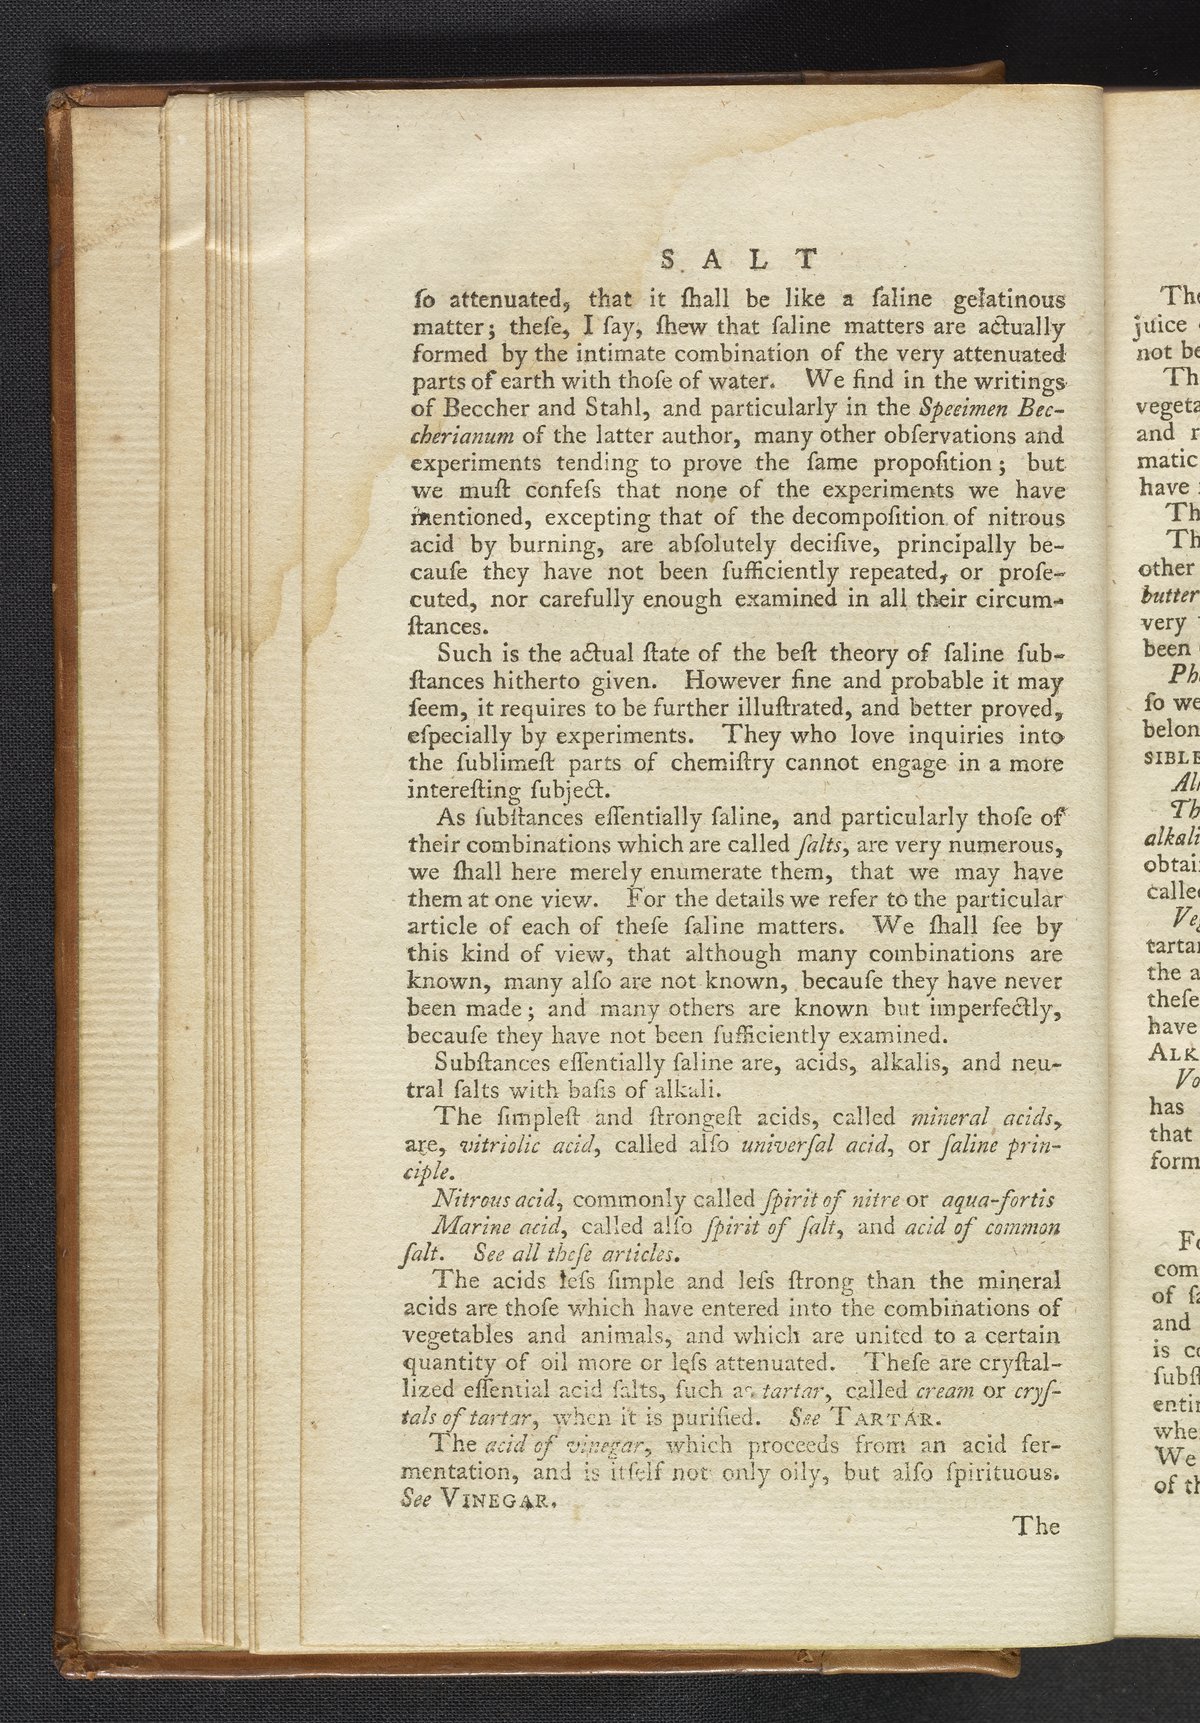 S A L T
ſo attenuated, that it ſhall be like a ſaline gelatinous
matter; theſe, I ſay, ſhew that ſaline matters are actually
formed by the intimate combination of the very attenuated
parts of earth with thoſe of water. We find in the writings
of Beccher and Stahl, and particularly in the Speeimen Bec-
cherianum of the latter author, many other obſervations and
experiments tending to prove the ſame propoſition; but
we muſt confeſs that none of the experiments we have
mentioned, excepting that of the decompoſition of nitrous
acid by burning, are abſolutely deciſive, principally be-
cauſe they have not been ſufficiently repeated, or proſe-
cuted, nor carefully enough examined in all their circum-
ſtances.
Such is the actual ſtate of the beſt theory of ſaline ſub-
ſtances hitherto given. However fine and probable it may
ſeem, it requires to be further illuſtrated, and better proved,
eſpecially by experiments. They who love inquiries into
the ſublimeſt parts of chemiſtry cannot engage in a more
intereſting ſubject.
As ſubſtances eſſentially ſaline, and particularly thoſe of
their combinations which are called ſalts, are very numerous,
we ſhall here merely enumerate them, that we may have
them at one view. For the details we refer to the particular
article of each of theſe ſaline matters. We ſhall ſee by
this kind of view, that although many combinations are
known, many alſo are not known, becauſe they have never
been made; and many others are known but imperfectly,
becauſe they have not been ſufficiently examined.
Subſtances eſſentially ſaline are, acids, alkalis, and neu-
tral ſalts with baſis of alkali.
The ſimpleſt and ſtrongeſt acids, called mineral acids,
are, vitriolic acid, called alſo univerſal acid, or ſaline prin-
ciple.
Nitrous acid, commonly called ſpirit of nitre or aqua-fortis
Marine acid, called alſo ſpirit of ſalt, and acid of common
ſalt. See all theſe articles.
The acids leſs ſimple and leſs ſtrong than the mineral
acids are thoſe which have entered into the combinations of
vegetables and animals, and which are united to a certain
quantity of oil more or leſs attenuated. Theſe are cryſtal-
lized eſſential acid ſalts, ſuch as tartar, called cream or cryſ-
tals of tartar, when it is purified. See TARTAR.
The acid of vinegar, which proceeds from an acid fer-
mentation, and is itſelf not only oily, but alſo ſpirituous.
See VINEGAR.
The
The
juice
not be
Th
vegeta
and r
matic
have
Th
Th
other
butter
very
been
Pho
ſo we
belon
SIBLE
Al
Th
alkali
obtai
called
Veg
tartar
the a
theſe
have
ALK
Vo
has
that
form
Fo
com
of ſa
and
is co
ſubſt
entir
whe
We
of th